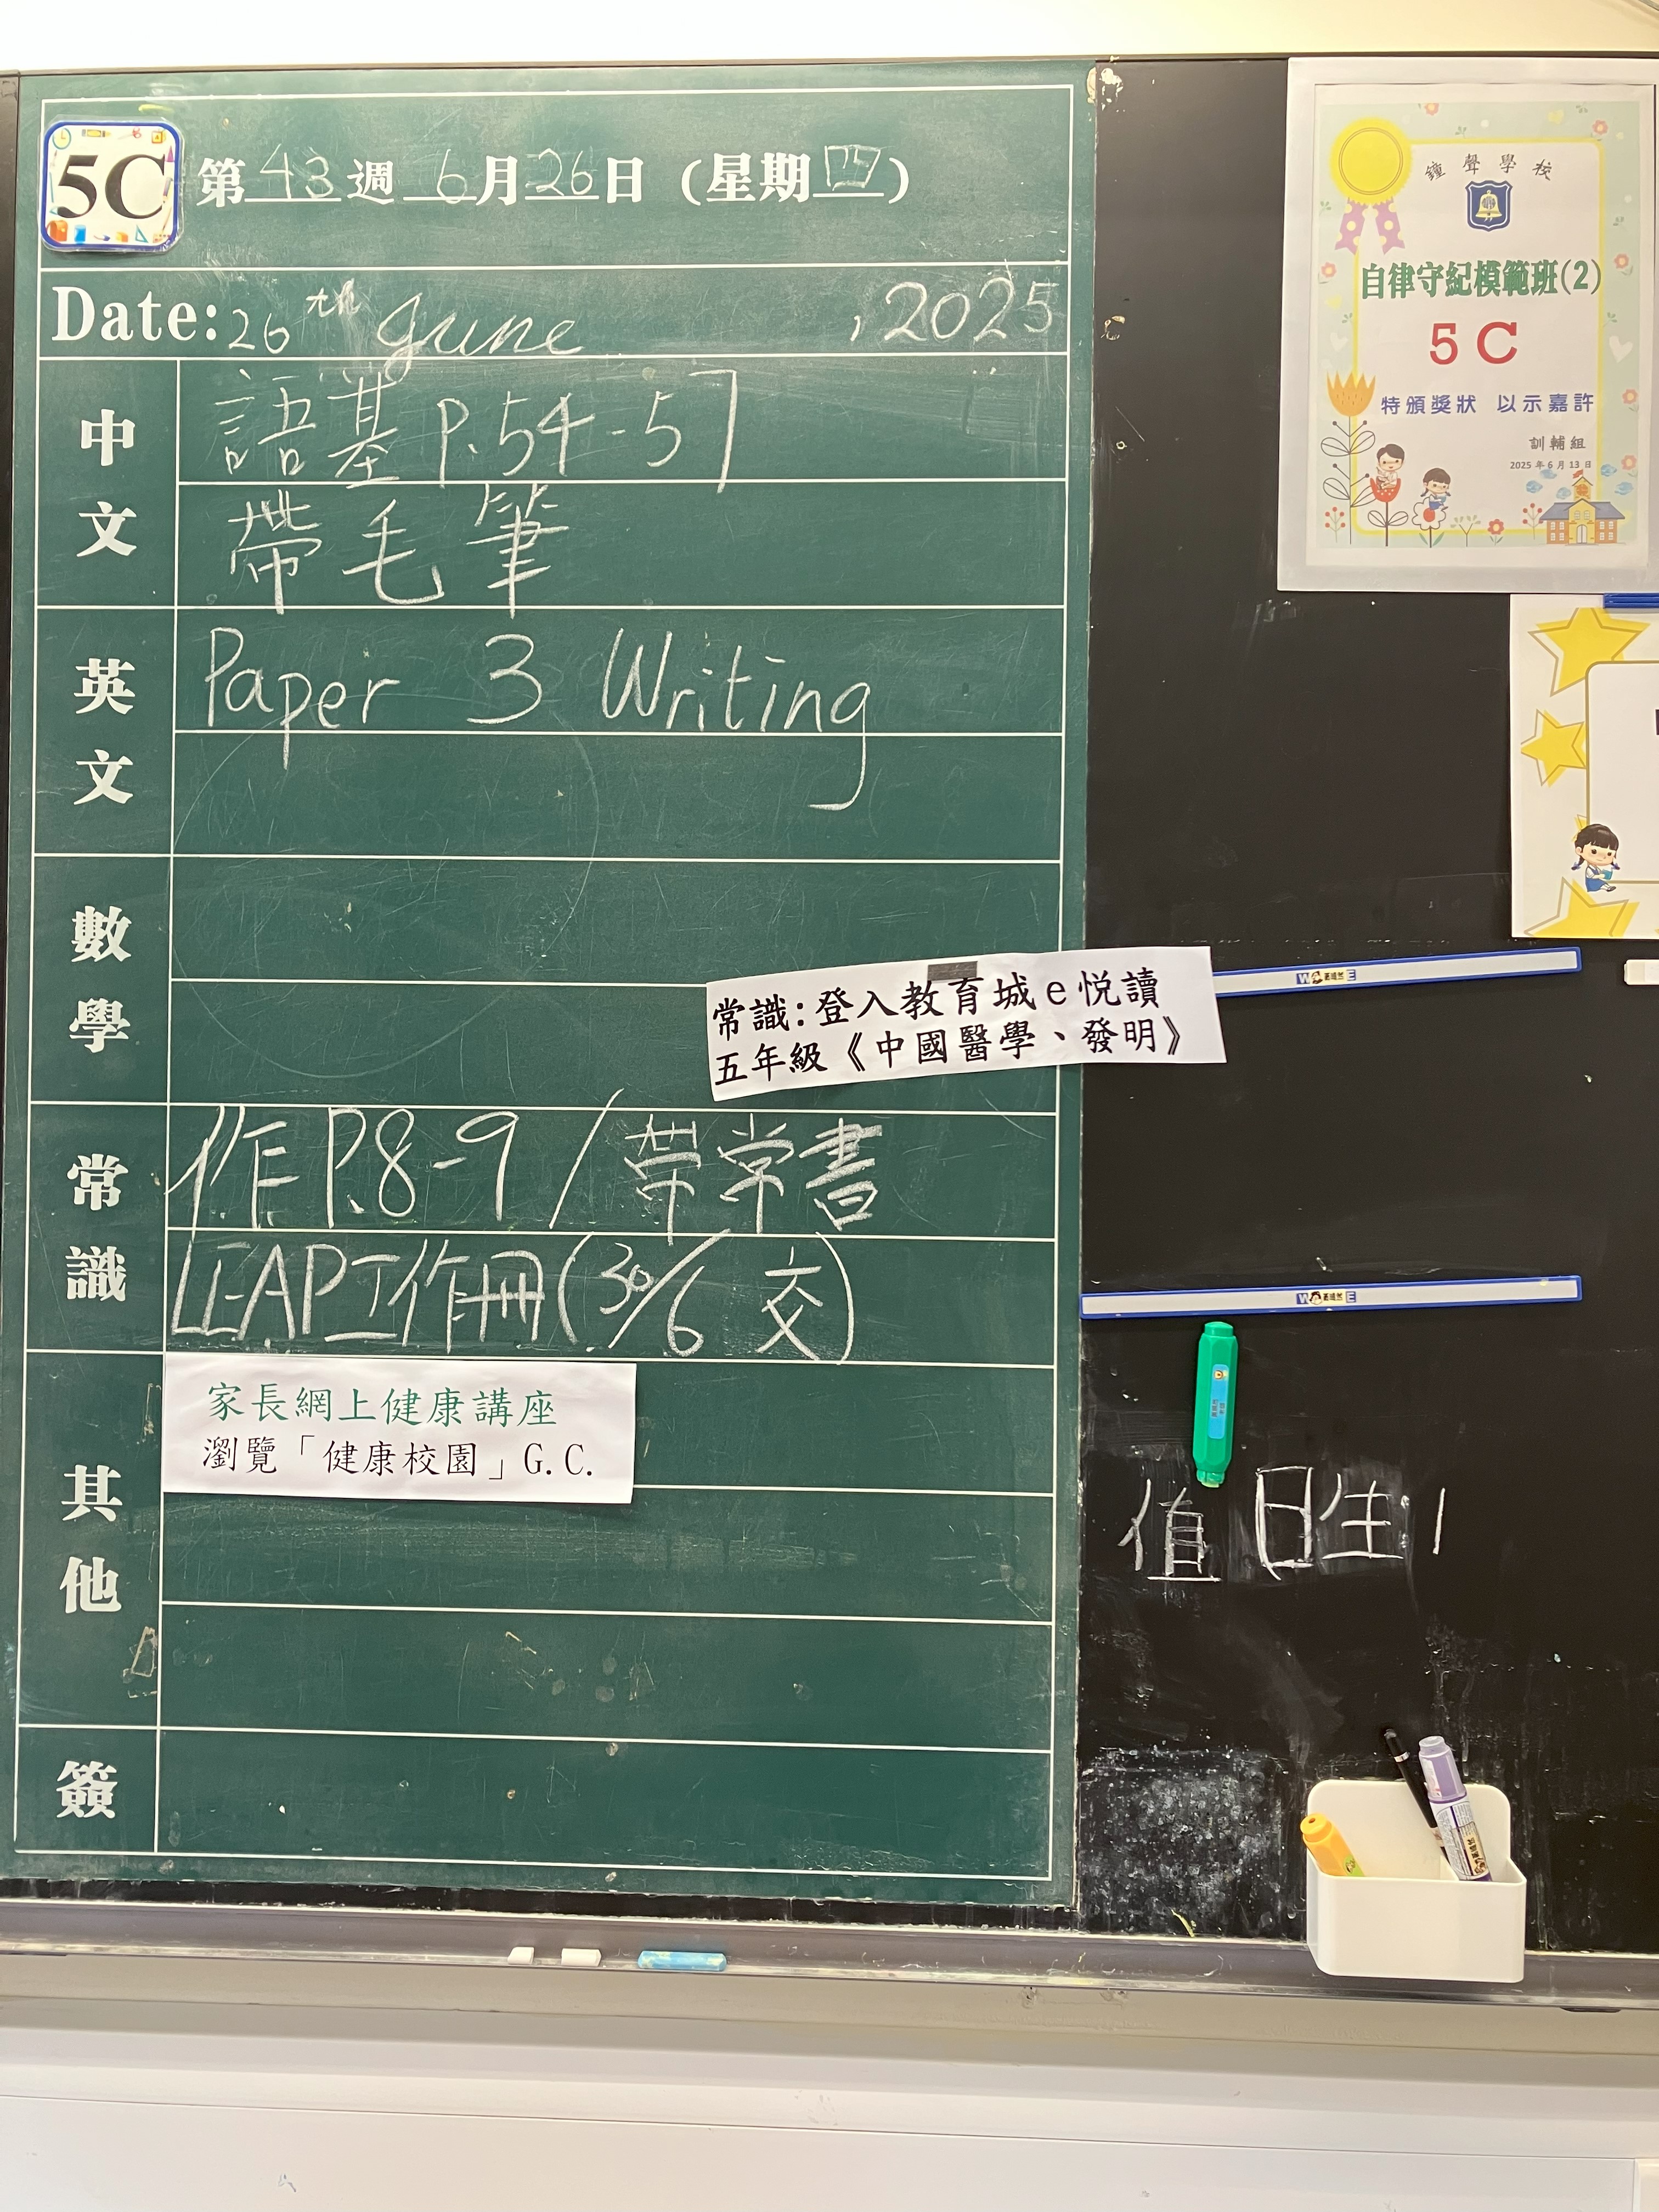 5C
第43週 6月26日 (星期四)
Date: 26th June, 2025
中文
語基 P.54-57
帶毛筆
英文
Paper 3 Writing
數學
常識:登入教育城e悅讀
五年級《中國醫學、發明》
常識
作 P.8-9 / 帶常書
LEAP工作冊(30/6 交)
其他
家長網上健康講座
瀏覽「健康校園」G.C.
簽
鐘聲學校
自律守紀模範班(2)
5C
特頒獎狀 以示嘉許
訓輔組
2025年6月13日
值日生:1